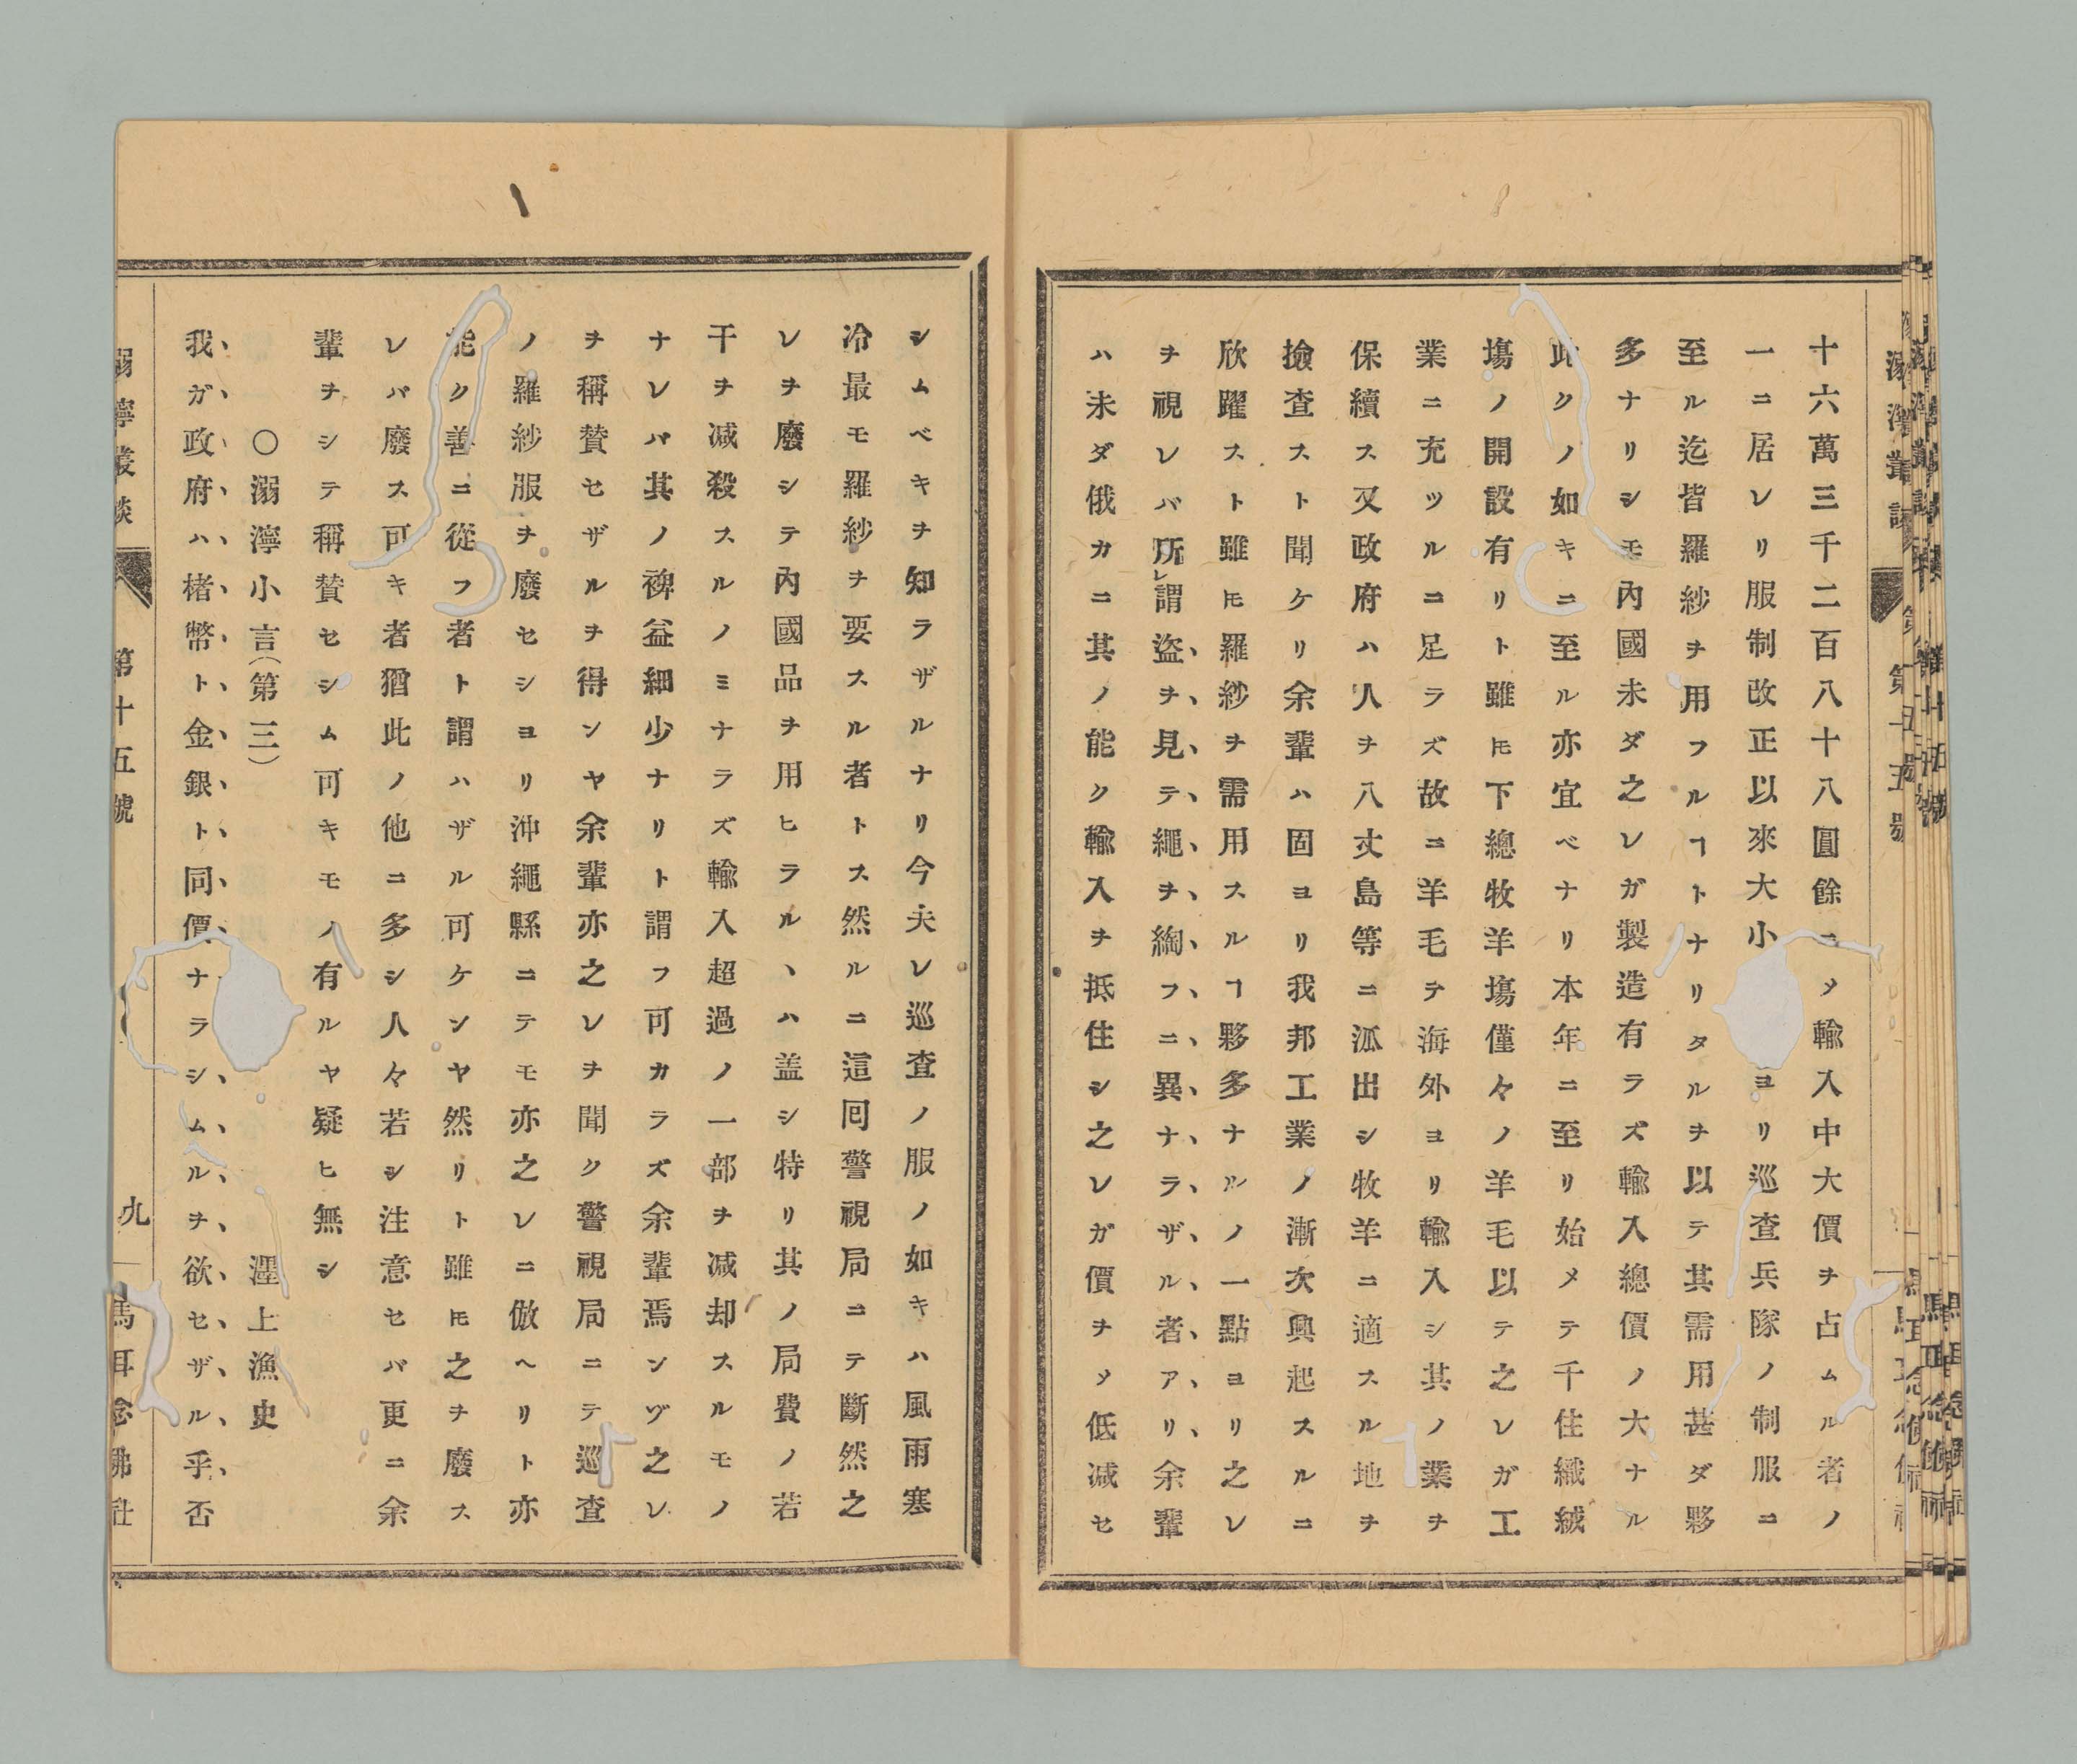 十六萬三千二百八十八圓餘ニメ輸入中大價ヲ占ムル者ノ
一ニ居レリ服制改正以來大小ヨリ巡査兵隊ノ制服ニ
至ル迄皆羅紗ヲ用フルヿトナリタルヲ以テ其需用甚ダ夥
多ナリシモ內國未ダ之レガ製造有ラズ輸入總價ノ大ナル
此クノ如キニ至ル亦宜ベナリ本年ニ至リ始メテ千住織絨
塲ノ開設有リト雖𪜈下總牧羊塲僅々ノ羊毛以テ之レガ工
業ニ充ツルニ足ラズ故ニ羊毛ヲ海外ヨリ輸入シ其ノ業ヲ
保續ス又政府ハ人ヲ八丈島等ニ派出シ牧羊ニ適スル地ヲ
撿査スト聞ケリ余輩ハ固ヨリ我邦工業ノ漸次興起スルニ
欣躍スト雖𪜈羅紗ヲ需用スルヿ夥多ナルノ一點ヨリ之レ
ヲ視レバ所謂盜ヲ見テ繩ヲ綯フニ異ナラザル者アリ余輩
ハ未ダ俄カニ其ノ能ク輸入ヲ抵住シ之レガ價ヲメ低减セ
シムベキヲ知ラザルナリ今夫レ巡査ノ服ノ如キハ風雨寒
冷最モ羅紗ヲ要スル者トス然ルニ這囘警視局ニテ斷然之
レヲ廢シテ內國品ヲ用ヒラルヽハ盖シ特リ其ノ局費ノ若
干ヲ减殺スルノミナラズ輸入超過ノ一部ヲ减却スルモノ
ナレバ其ノ裨益細少ナリト謂フ可カラズ余輩焉ンゾ之レ
ヲ稱賛セザルヲ得ンヤ余輩亦之レヲ聞ク警視局ニテ巡査
ノ羅紗服ヲ廢セシヨリ沖繩縣ニテモ亦之レニ倣ヘリト亦
能ク善ニ從フ者ト謂ハザル可ケンヤ然リト雖𪜈之ヲ廢ス
レバ廢ス可キ者猶此ノ他ニ多シ人々若シ注意セバ更ニ余
輩ヲシテ稱賛セシム可キモノ有ルヤ疑ヒ無シ
○溺濘小言(第三) 濹上漁史
我ガ政府ハ楮幣ト金銀ト同價ナラシムルヲ欲セザル乎否
溺濘叢談 第十五號 九 馬耳念佛社